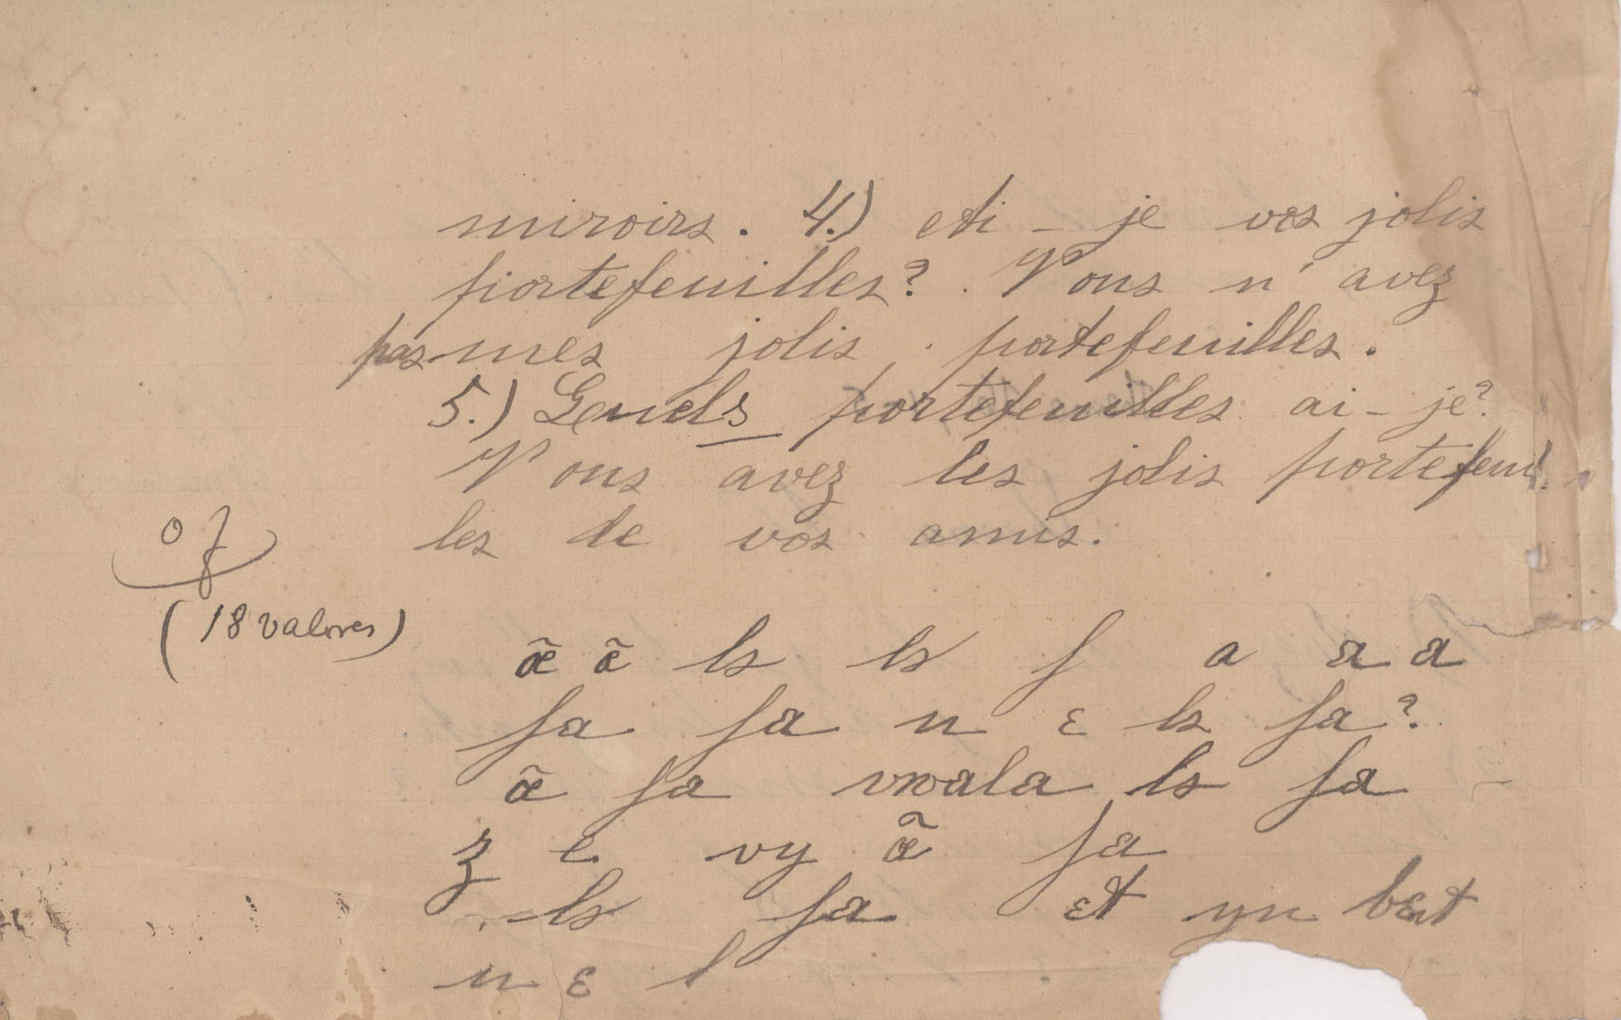 miroirs. 4.) Ai - je vos jolis
portefeuilles? Vous n'avez
pas mes jolis portefeuilles.
5.) Quels portefeuilles ai - je?
Vous avez les jolis portefeuil
les de vos amis.
(18 valores)
œ̃ œ̃ lə lə ʃ a a a
ʃa ʃa n ɛ lə ʃa?
œ̃ ʃa vwala lə ʃa
ʒ e vy œ̃ ʃa
lə ʃa ɛt yn bɛt
n ɛ l